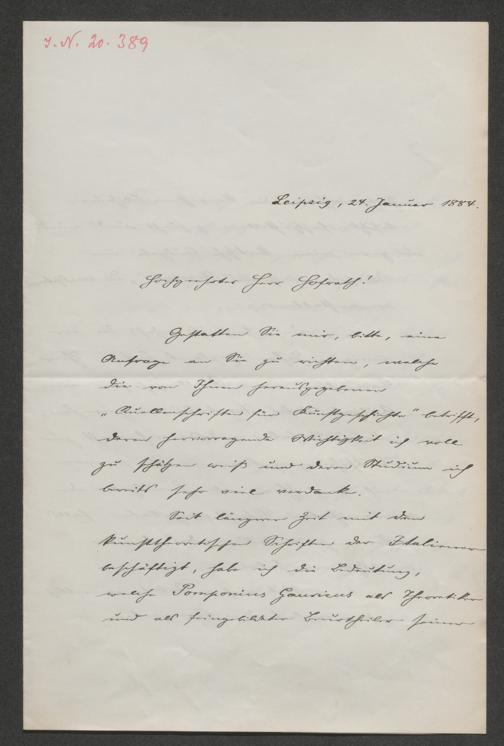 I. N. 20.389
Leipzig, 24. Januar 1884.
Hochgeehrter Herr Hofrath!
Gestatten Sie mir, bitte, eine
Anfrage an Sie zu richten, welche
die von Ihnen herausgegebenen
„Quellenschriften für Kunstgeschichte" betrifft,
deren hervorragende Wichtigkeit ich voll
zu schätzen weiß und deren Studium ich
bereits sehr viel verdanke.
Seit längerer Zeit mit den
kunsttheoretischen Schriften der Italiener
beschäftigt, habe ich die Bedeutung,
welche Pomponius Gauricus als Theoretiker
und als feingebildeter Beurtheiler seiner